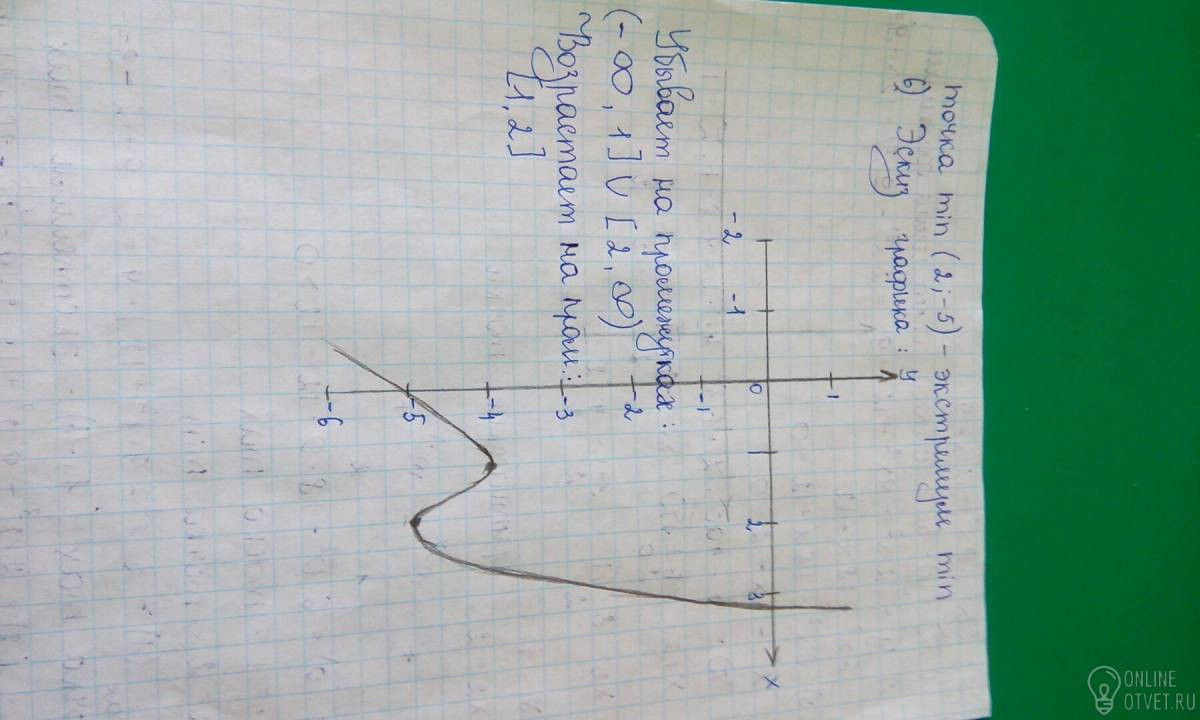 точка min (2; -5) - экстремум min
6) Эскиз графика:
y
1
0
-1
-2
-3
-4
-5
-6
-2
-1
2
3
x
Убывает на промежутках:
(-∞, 1] ∪ [2, ∞)
Возрастает на пром:
[1, 2]
ONLINE
OTVET.RU